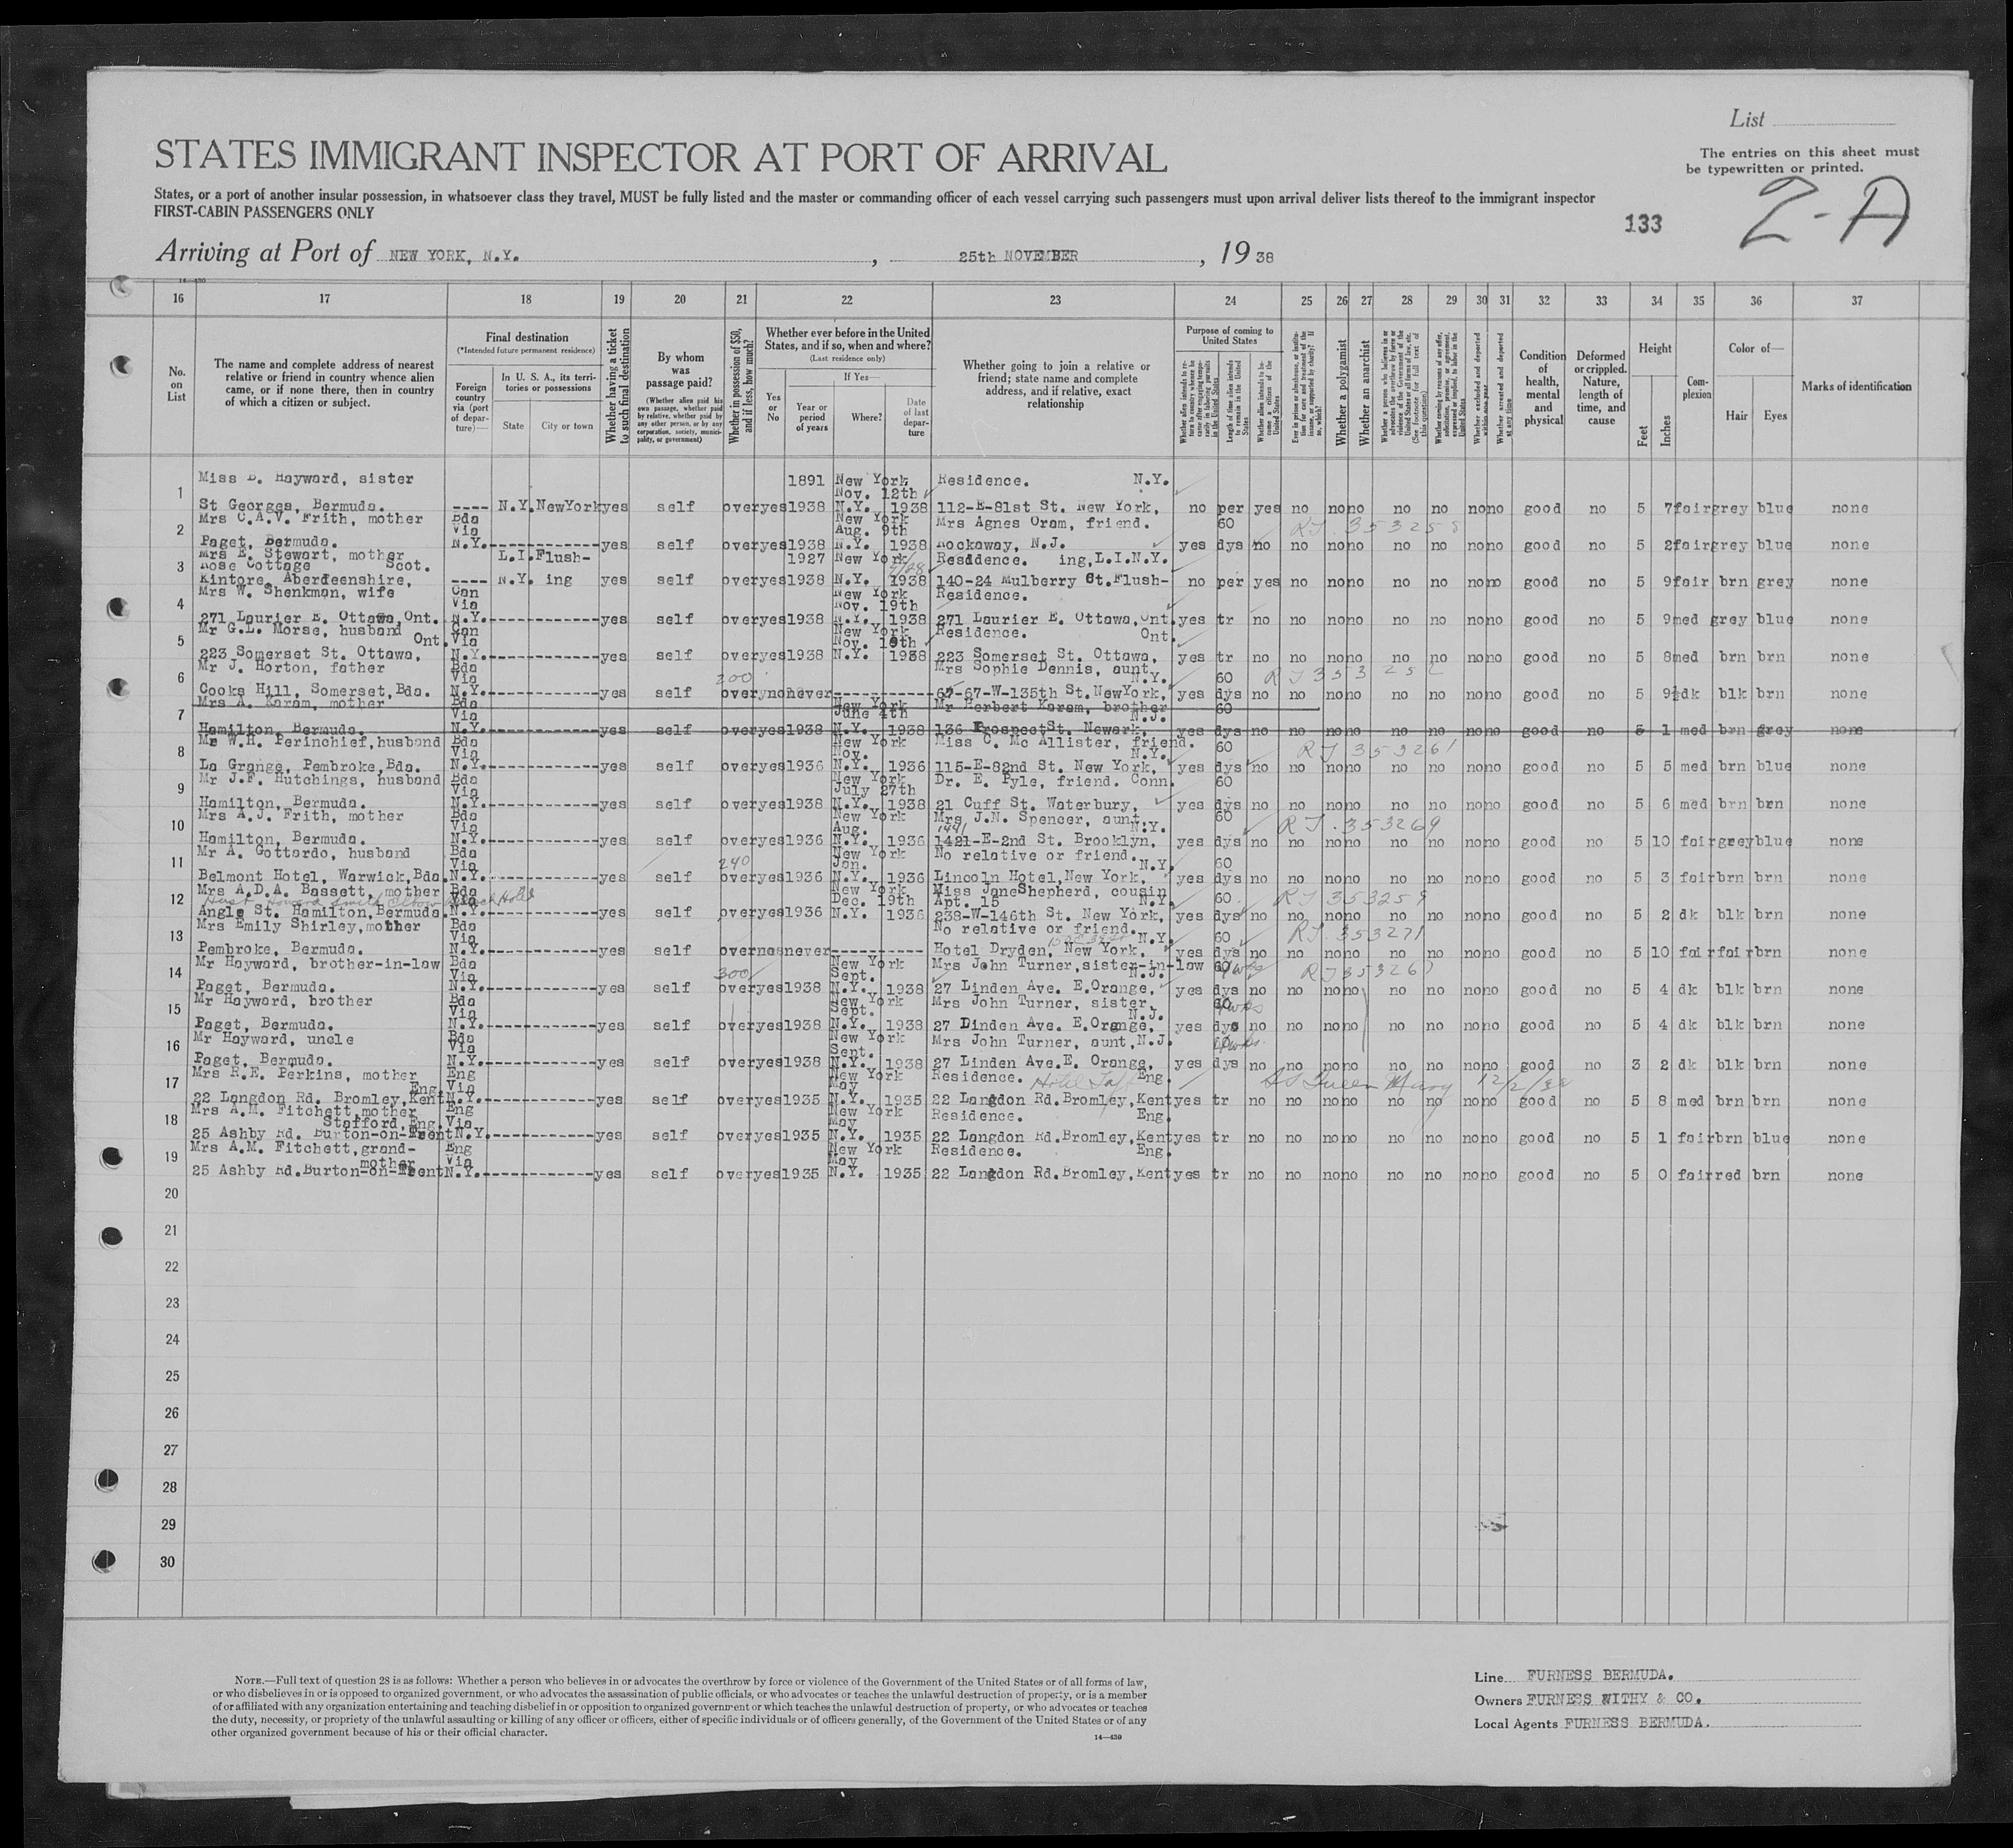 List
STATES IMMIGRANT INSPECTOR AT PORT OF ARRIVAL
The entries on this sheet must
be typewritten or printed.
States, or a port of another insular possession, in whatsoever class they travel, MUST be fully listed and the master or commanding officer of each vessel carrying such passengers must upon arrival deliver lists thereof to the immigrant inspector
FIRST-CABIN PASSENGERS ONLY
133
2-A
Arriving at Port of NEW YORK, N.Y. , 25th NOVEMBER , 19 38
16 17 18 19 20 21 22 23 24 25 26 27 28 29 30 31 32 33 34 35 36 37
No. on List
The name and complete address of nearest relative or friend in country whence alien came, or if none there, then in country of which a citizen or subject.
Final destination
(*Intended future permanent residence)
Foreign country via (port of departure)—
In U. S. A., its territories or possessions
State
City or town
Whether having a ticket to such final destination
By whom was passage paid?
(Whether alien paid his own passage, whether paid by relative, whether paid by any other person, or by any corporation, society, municipality, or government)
Whether in possession of $50, and if less, how much?
Whether ever before in the United States, and if so, when and where?
(Last residence only)
Yes or No
If Yes—
Year or period of years
Where?
Date of last departure
Whether going to join a relative or friend; state name and complete address, and if relative, exact relationship
Purpose of coming to United States
Whether a polygamist
Whether an anarchist
Condition of health, mental and physical
Deformed or crippled. Nature, length of time, and cause
Height
Feet
Inches
Complexion
Color of—
Hair
Eyes
Marks of identification
Miss B. Hayward, sister 1891 New York Residence. N.Y.
1 Nov. 12th
St Georges, Bermuda. ---- N.Y. NewYork yes self over yes 1938 N.Y. 1938 112-E-81st St. New York, no per yes no no no no no no no good no 5 7 fair grey blue
Mrs C.A.V. Frith, mother Bda New York Mrs Agnes Oram, friend. 60 RT. 353258
2 Via Aug. 9th
Paget, Bermuda. N.Y. yes self over yes 1938 N.Y. 1938 Rockaway, N.J. yes dys no no no no no no no no good no 5 2 fair grey blue none
Mrs E. Stewart, mother L.I. Flush- 1927 New York Residence. ing, L.I.N.Y.
3 Rose Cottage Scot.
Kintore, Aberdeenshire, ---- N.Y. ing yes self over yes 1938 N.Y. 1938 140-24 Mulberry St. Flush- no per yes no no no no no no no good no 5 9 fair brn grey none
Mrs W. Shenkman, wife Can New York Residence.
4 Via Nov. 19th
271 Laurier E. Ottawa, Ont. N.Y. yes self over yes 1938 N.Y. 1938 271 Laurier E. Ottawa, Ont. yes tr no no no no no no no no good no 5 9 med grey blue none
Mr G.L. Morse, husband Can New York Residence. Ont.
5 Ont. Via Nov. 19th
223 Somerset St. Ottawa, N.Y. yes self over yes 1938 N.Y. 1938 223 Somerset St. Ottawa, yes tr no no no no no no no no good no 5 8 med brn brn none
Mr J. Horton, father Bda Mrs Sophie Dennis, aunt
6 Via 200 N.Y. 60
Cooks Hill, Somerset, Bda. N.Y. yes self over no never 67-W-135th St. NewYork, yes dys no no no no no no no no good no 5 9½ dk blk brn none
Mrs A. Karam, mother Bda New York Mr Herbert Karam, brother 60
7 Via June 4th N.J.
Hamilton, Bermuda. N.Y. yes self over yes 1938 N.Y. 1938 136 Prospect St. Newark, yes dys no no no no no no no no good no 5 1 med brn grey none
Mr W.H. Perinchief, husband Bda New York Miss C. Mc Allister, friend. 60 RT 353261
8 Via Nov. N.Y.
La Grange, Pembroke, Bda. N.Y. yes self over yes 1936 N.Y. 1936 115-E-82nd St. New York, yes dys no no no no no no no no good no 5 5 med brn blue none
Mr J.F. Hutchings, husband Bda New York Dr. E. Pyle, friend. Conn. 60
9 Via July 27th
Hamilton, Bermuda. N.Y. yes self over yes 1938 N.Y. 1938 21 Cuff St. Waterbury, yes dys no no no no no no no no good no 5 6 med brn brn none
Mrs A.J. Frith, mother Bda New York Mrs J.N. Spencer, aunt 60 RT. 353269
10 Via Aug. 1441 N.Y.
Hamilton, Bermuda. N.Y. yes self over yes 1936 N.Y. 1936 1421-E-2nd St. Brooklyn, yes dys no no no no no no no no good no 5 10 fair grey blue none
Mr A. Gottardo, husband Bda New York No relative or friend.
11 Via 240 Jan. N.Y. 60
Belmont Hotel, Warwick, Bda. N.Y. yes self over yes 1936 N.Y. 1936 Lincoln Hotel, New York, yes dys no no no no no no no no good no 5 3 fair brn brn none
Mrs A.D.A. Bassett, mother Bda New York Miss Jane Shepherd, cousin
12 Via Dec. 19th Apt. 15 N.Y. 60 RT 353259
Angle St. Hamilton, Bermuda. N.Y. yes self over yes 1936 N.Y. 1936 238-W-146th St. New York, yes dys no no no no no no no no good no 5 2 dk blk brn none
Mrs Emily Shirley, mother Bda No relative or friend.
13 Via N.Y. 60 RT. 353271
Pembroke, Bermuda. N.Y. yes self over no never Hotel Dryden, New York, yes dys no no no no no no no no good no 5 10 fair fair brn none
Mr Hayward, brother-in-law Bda New York Mrs John Turner, sister-in-law 60
14 Via 300 Sept. N.J.
Paget, Bermuda. N.Y. yes self over yes 1938 N.Y. 1938 27 Linden Ave. E.Orange, yes dys no no no no no no no no good no 5 4 dk blk brn none
Mr Hayward, brother Bda New York Mrs John Turner, sister, 60
15 Via Sept. N.J.
Paget, Bermuda. N.Y. yes self over yes 1938 N.Y. 1938 27 Dinden Ave. E.Orange, yes dys no no no no no no no no good no 5 4 dk blk brn none
Mr Hayward, uncle Bda New York Mrs John Turner, aunt, N.J.
16 Via Sept.
Paget, Bermuda. N.Y. yes self over yes 1938 N.Y. 1938 27 Linden Ave. E. Orange, yes dys no no no no no no no no good no 3 2 dk blk brn none
Mrs R.E. Perkins, mother Eng New York Residence. Eng. SS Queen Mary
17 Eng. Via May
22 Langdon Rd. Bromley, Kent N.Y. yes self over yes 1935 N.Y. 1935 22 Langdon Rd. Bromley, Kent yes tr no no no no no no no no good no 5 8 med brn brn none
Mrs A.M. Fitchett, mother Eng New York Residence. Eng.
18 Stafford, Eng. Via May
25 Ashby Rd. Burton-on-Trent N.Y. yes self over yes 1935 N.Y. 1935 22 Langdon Rd. Bromley, Kent yes tr no no no no no no no no good no 5 1 fair brn blue none
Mrs A.M. Fitchett, grand- Eng New York Residence. Eng.
19 mother Via May
25 Ashby Rd. Burton-on-Trent N.Y. yes self over yes 1935 N.Y. 1935 22 Langdon Rd. Bromley, Kent yes tr no no no no no no no no good no 5 0 fair red brn none
20
21
22
23
24
25
26
27
28
29
30
NOTE.—Full text of question 28 is as follows: Whether a person who believes in or advocates the overthrow by force or violence of the Government of the United States or of all forms of law,
or who disbelieves in or is opposed to organized government, or who advocates the assassination of public officials, or who advocates or teaches the unlawful destruction of property, or is a member
of or affiliated with any organization entertaining and teaching disbelief in or opposition to organized government or which teaches the unlawful destruction of property, or who advocates or teaches
the duty, necessity, or propriety of the unlawful assaulting or killing of any officer or officers, either of specific individuals or of officers generally, of the Government of the United States or of any
other organized government because of his or their official character.
14—430
Line FURNESS BERMUDA.
Owners FURNESS WITHY & CO.
Local Agents FURNESS BERMUDA.